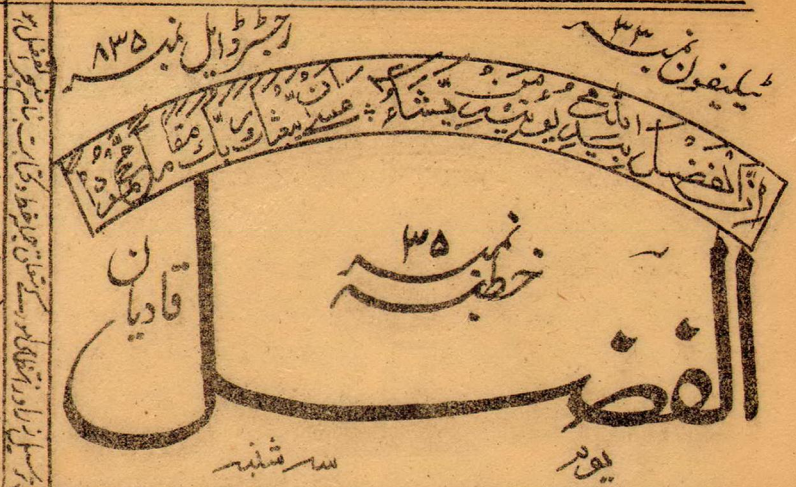 ٹیلیفون نمبر ۳۳
رجسٹرڈ ایل نمبر ۸۳۵
اِنَّ الْفَضْلَ بِیَدِ اللّٰہِ یُؤْتِیْہِ مَنْ یَّشَآءُ عَسٰۤی اَنْ یَّبْعَثَکَ رَبُّکَ مَقَامًا مَّحْمُوْدًا
خطبہ نمبر ۳۵
الفضل
قادیان
یوم سہ شنبہ